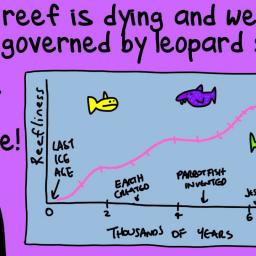 reef is dying and we
governed by leopard s
e!
Reefliness
LAST
ICE
AGE
EARTH
CREATED
PARROTFISH
INVENTED
JES
0 2 4 6
THOUSANDS OF YEARS